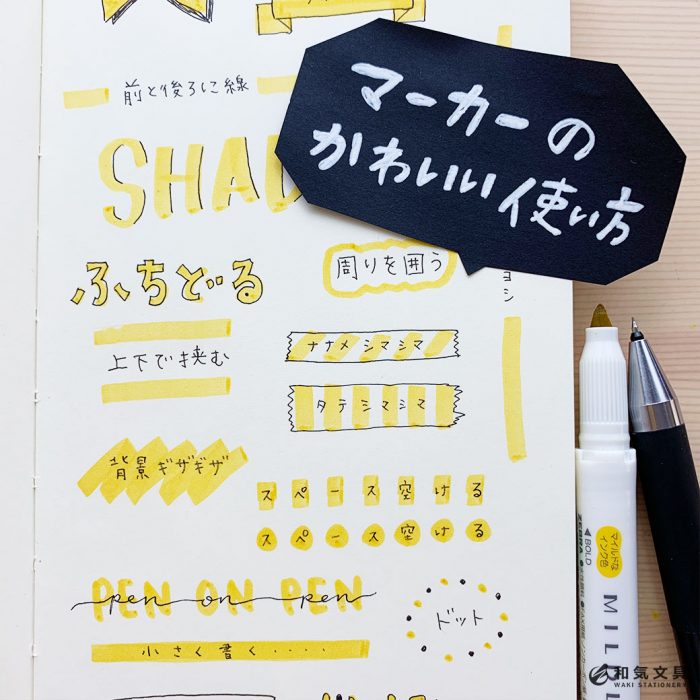 マーカーの
かわいい使い方
前と後ろに線
SHAD
ふちどる
周りを囲う
ョシ
上下で挟む
ナナメシマシマ
タテシマシマ
背景ギザギザ
スペース空ける
スペース空ける
PEN ON PEN
pen on pen
ドット
小さく書く・・・・
マイルドな
インク色
◀BOLD
ZEBRA
MIL
和気文具
WAKI STATIONERY